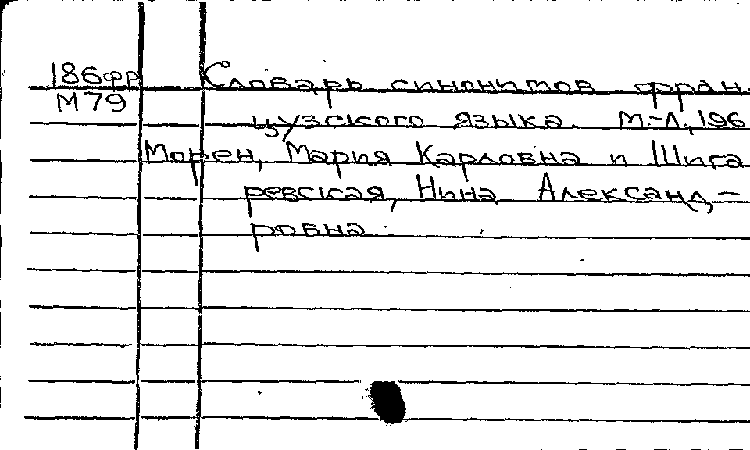 186фр Словарь синонимов фран
М79 цузского языка. М.-Л., 196
Морен, Мария Карловна и Шига
ревская, Нина Александ-
ровна.